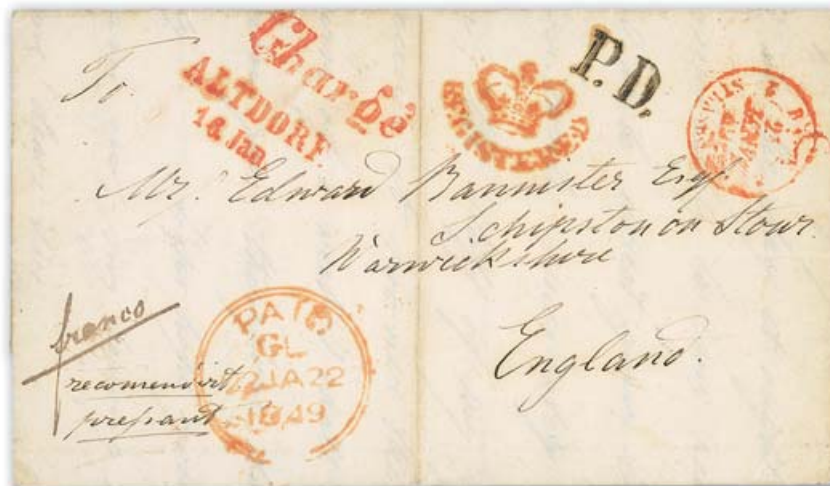 To
Chargé
ALTDORF
16 Jan
REGISTERED
P.D.
Mr. Edward Bannister Esqr
Schipston on Stour.
Warwickshire
England.
franco
recomendirt
prepaid
PAID
GL
22JA22
1849